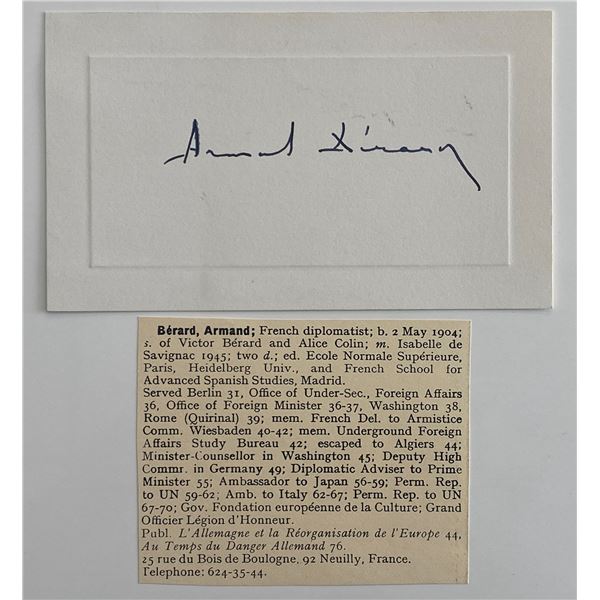 Armand Bérard
Bérard, Armand; French diplomatist; b. 2 May 1904;
s. of Victor Bérard and Alice Colin; m. Isabelle de
Savignac 1945; two d.; ed. Ecole Normale Supérieure,
Paris, Heidelberg Univ., and French School for
Advanced Spanish Studies, Madrid.
Served Berlin 31, Office of Under-Sec., Foreign Affairs
36, Office of Foreign Minister 36-37, Washington 38,
Rome (Quirinal) 39; mem. French Del. to Armistice
Comm. Wiesbaden 40-42; mem. Underground Foreign
Affairs Study Bureau 42; escaped to Algiers 44;
Minister-Counsellor in Washington 45; Deputy High
Commr. in Germany 49; Diplomatic Adviser to Prime
Minister 55; Ambassador to Japan 56-59; Perm. Rep.
to UN 59-62; Amb. to Italy 62-67; Perm. Rep. to UN
67-70; Gov. Fondation européenne de la Culture; Grand
Officier Légion d'Honneur.
Publ. L'Allemagne et la Réorganisation de l'Europe 44,
Au Temps du Danger Allemand 76.
25 rue du Bois de Boulogne, 92 Neuilly, France.
Telephone: 624-35-44.